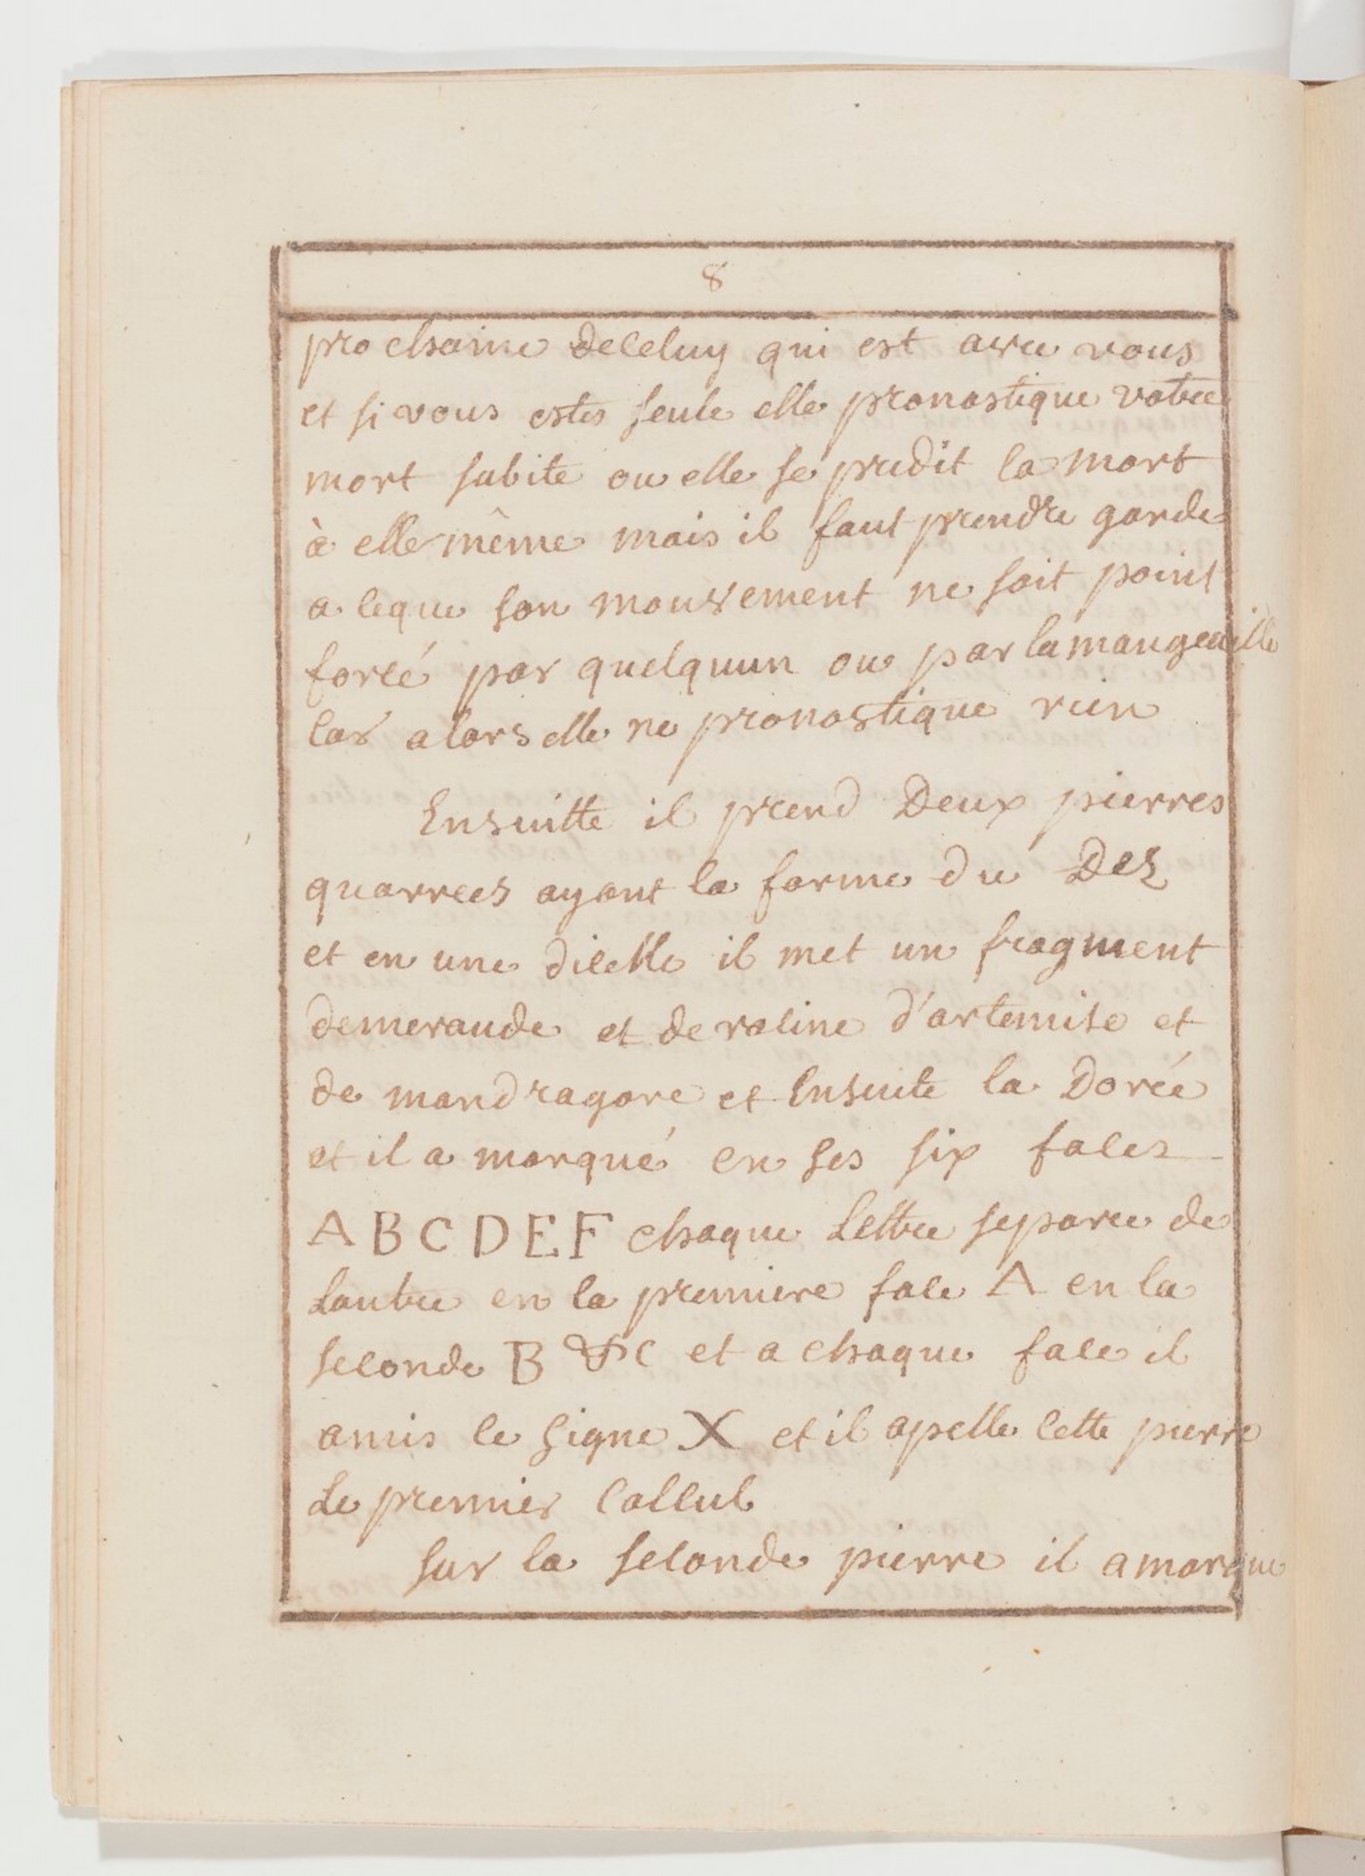 8
prochaine deceluy qui est avec vous
et si vous estes seule elle pronostique votre
mort subite ou elle se predit la mort
à elle même mais il faut prendre garde
a ceque son mouvement ne soit point
forcé par quelquun ou par la mangeaille
car alors elle ne pronostique rien
Ensuitte il prend Deux pierres
quarrees ayant la forme du Dez
et en une dicelle il met un fragment
demeraude et de racine d'artemise et
de mandragore et Ensuite la Dorée
et il a marqué en ses six faces
A B C D E F chaque Lettre separee de
Lautre en la premiere face A en la
seconde B &c et a chaque face il
amis le signe X et il apelle cette pierre
Le premier Calcul
Sur la seconde pierre il a marque